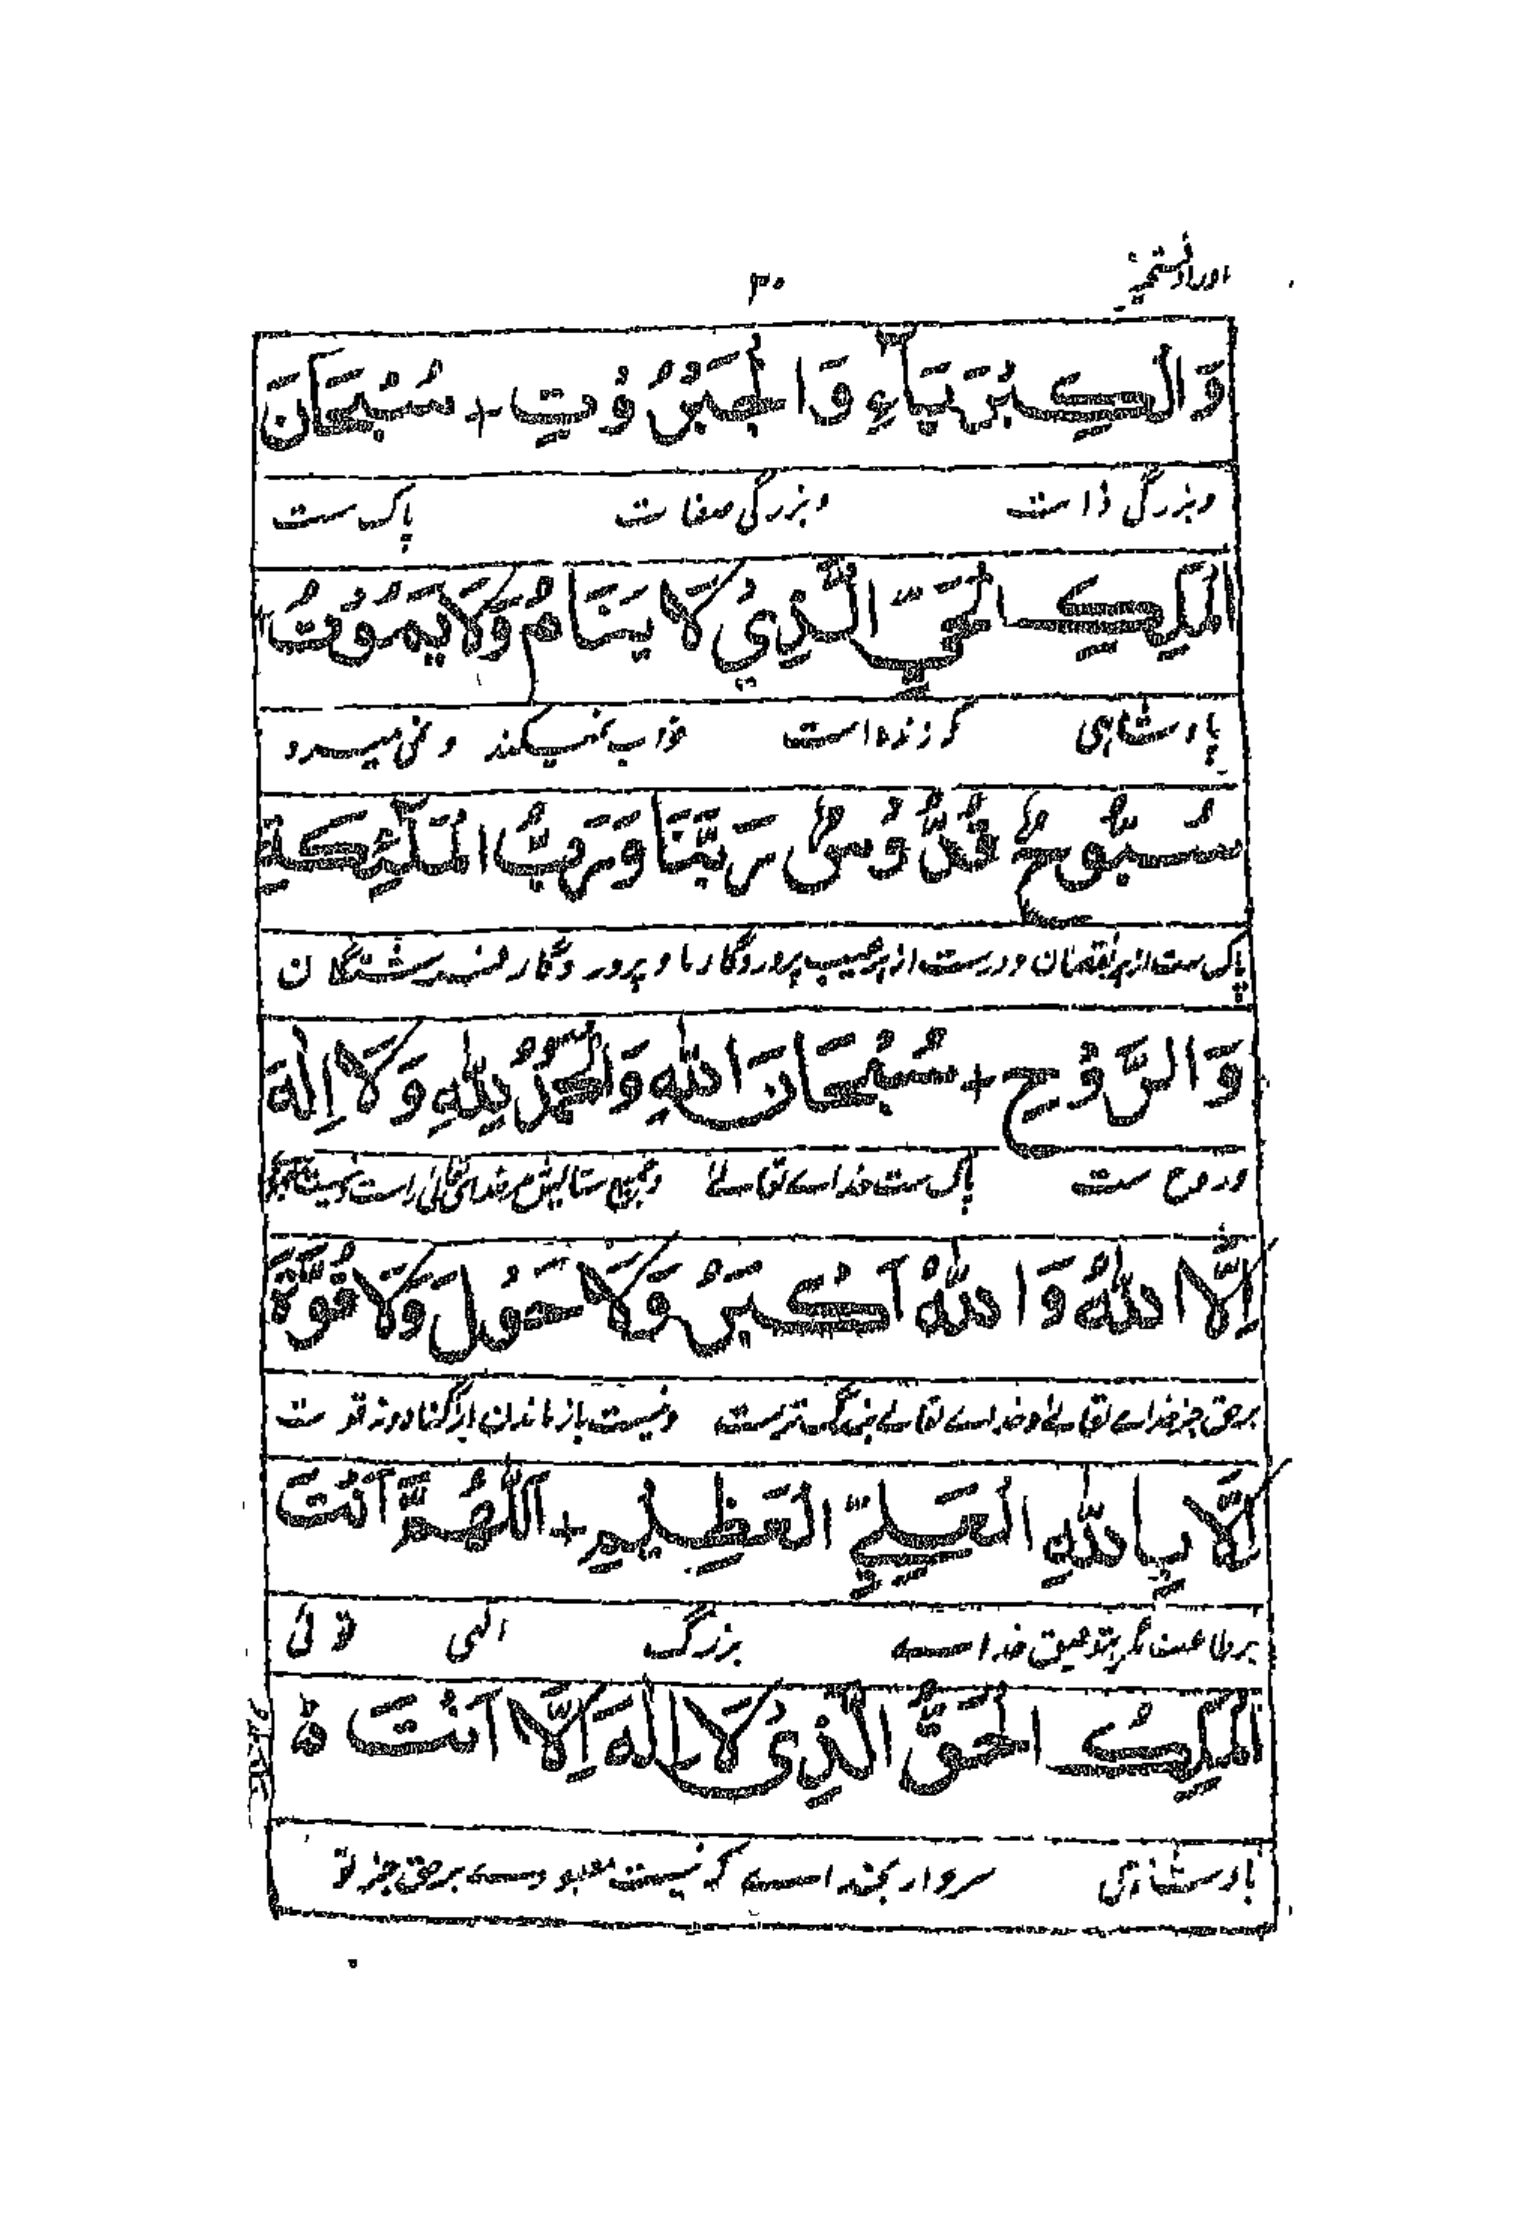 اوراد فتحیہ
۳۰
وَالْكِبْرِيَاءِ وَالْجَبَرُوْتِ + سُبْحَانَ
و بزرگی ذات و بزرگی صفات پاک ست
الْمَلِكِ الْحَيِّ الَّذِيْ لَا يَنَامُ وَلَا يَمُوْتُ +
پادشاہی کہ زندہ است خواب نمیکند و نمی میرد
سُبُّوْحٌ قُدُّوْسٌ رَبُّنَا وَرَبُّ الْمَلٰٓئِكَةِ
پاک ست از ہر نقصان و درست از ہر عیب پروردگار ما و پروردگار فرشتگان
وَالرُّوْحِ + سُبْحَانَ اللّٰهِ وَالْحَمْدُ لِلّٰهِ وَلَا اِلٰهَ
و روح ست پاک ست خداے تعالےٰ و جمیع ستایش مر خدای تعالی راست و نیست
اِلَّا اللّٰهُ وَاللّٰهُ اَكْبَرُ وَلَا حَوْلَ وَلَا قُوَّةَ
برحق جز خداے تعالےٰ و خداے تعالےٰ بزرگ ترست و نیست باز ماندن از گناہ و نہ قوت
اِلَّا بِاللّٰهِ الْعَلِيِّ الْعَظِيْمِ + اَللّٰهُمَّ اَنْتَ
بر طاعت مگر بتوفیق خداے بزرگ الٰہی تو ئی
الْمَلِكُ الْحَقُّ الَّذِيْ لَا اِلٰهَ اِلَّا اَنْتَ ہ
پادشاہی سزاوار بخداے کہ نیست معبودے برحق جز تو